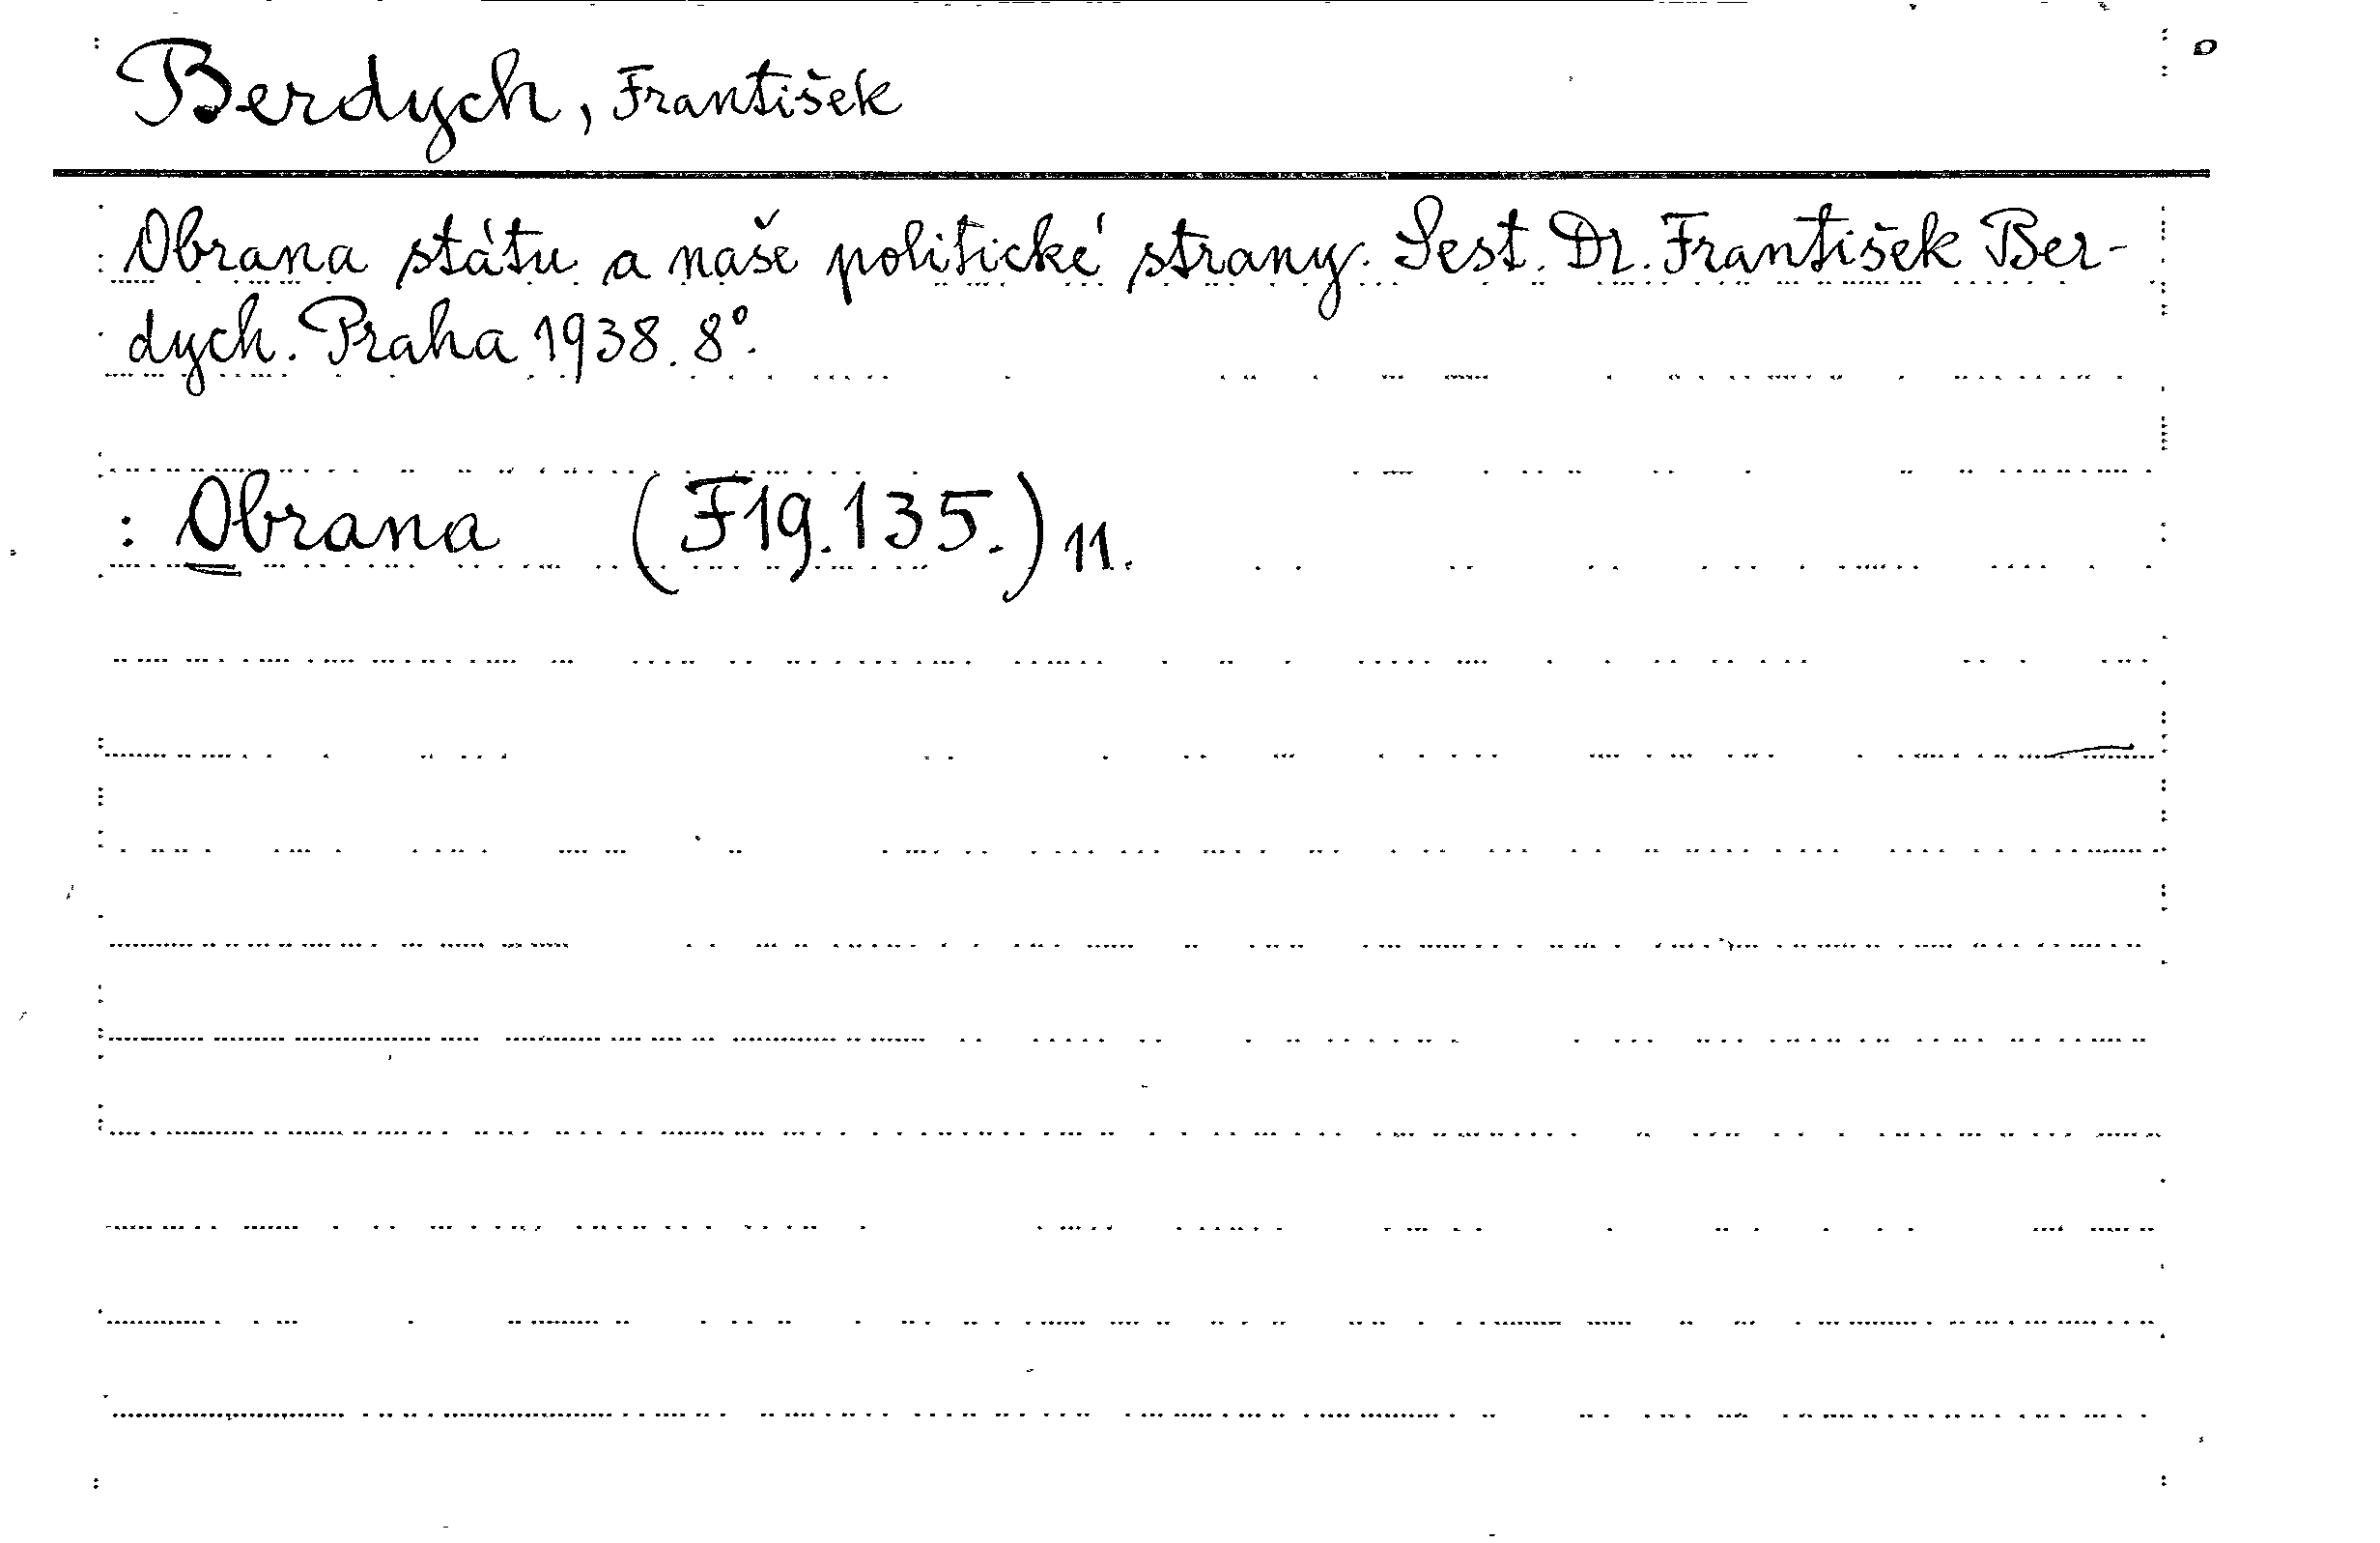 Berdych, František
Obrana státu a naše politické strany. Sest. Dr. František Ber-
dych. Praha 1938. 8°.
: Obrana (F19.135.) 11.